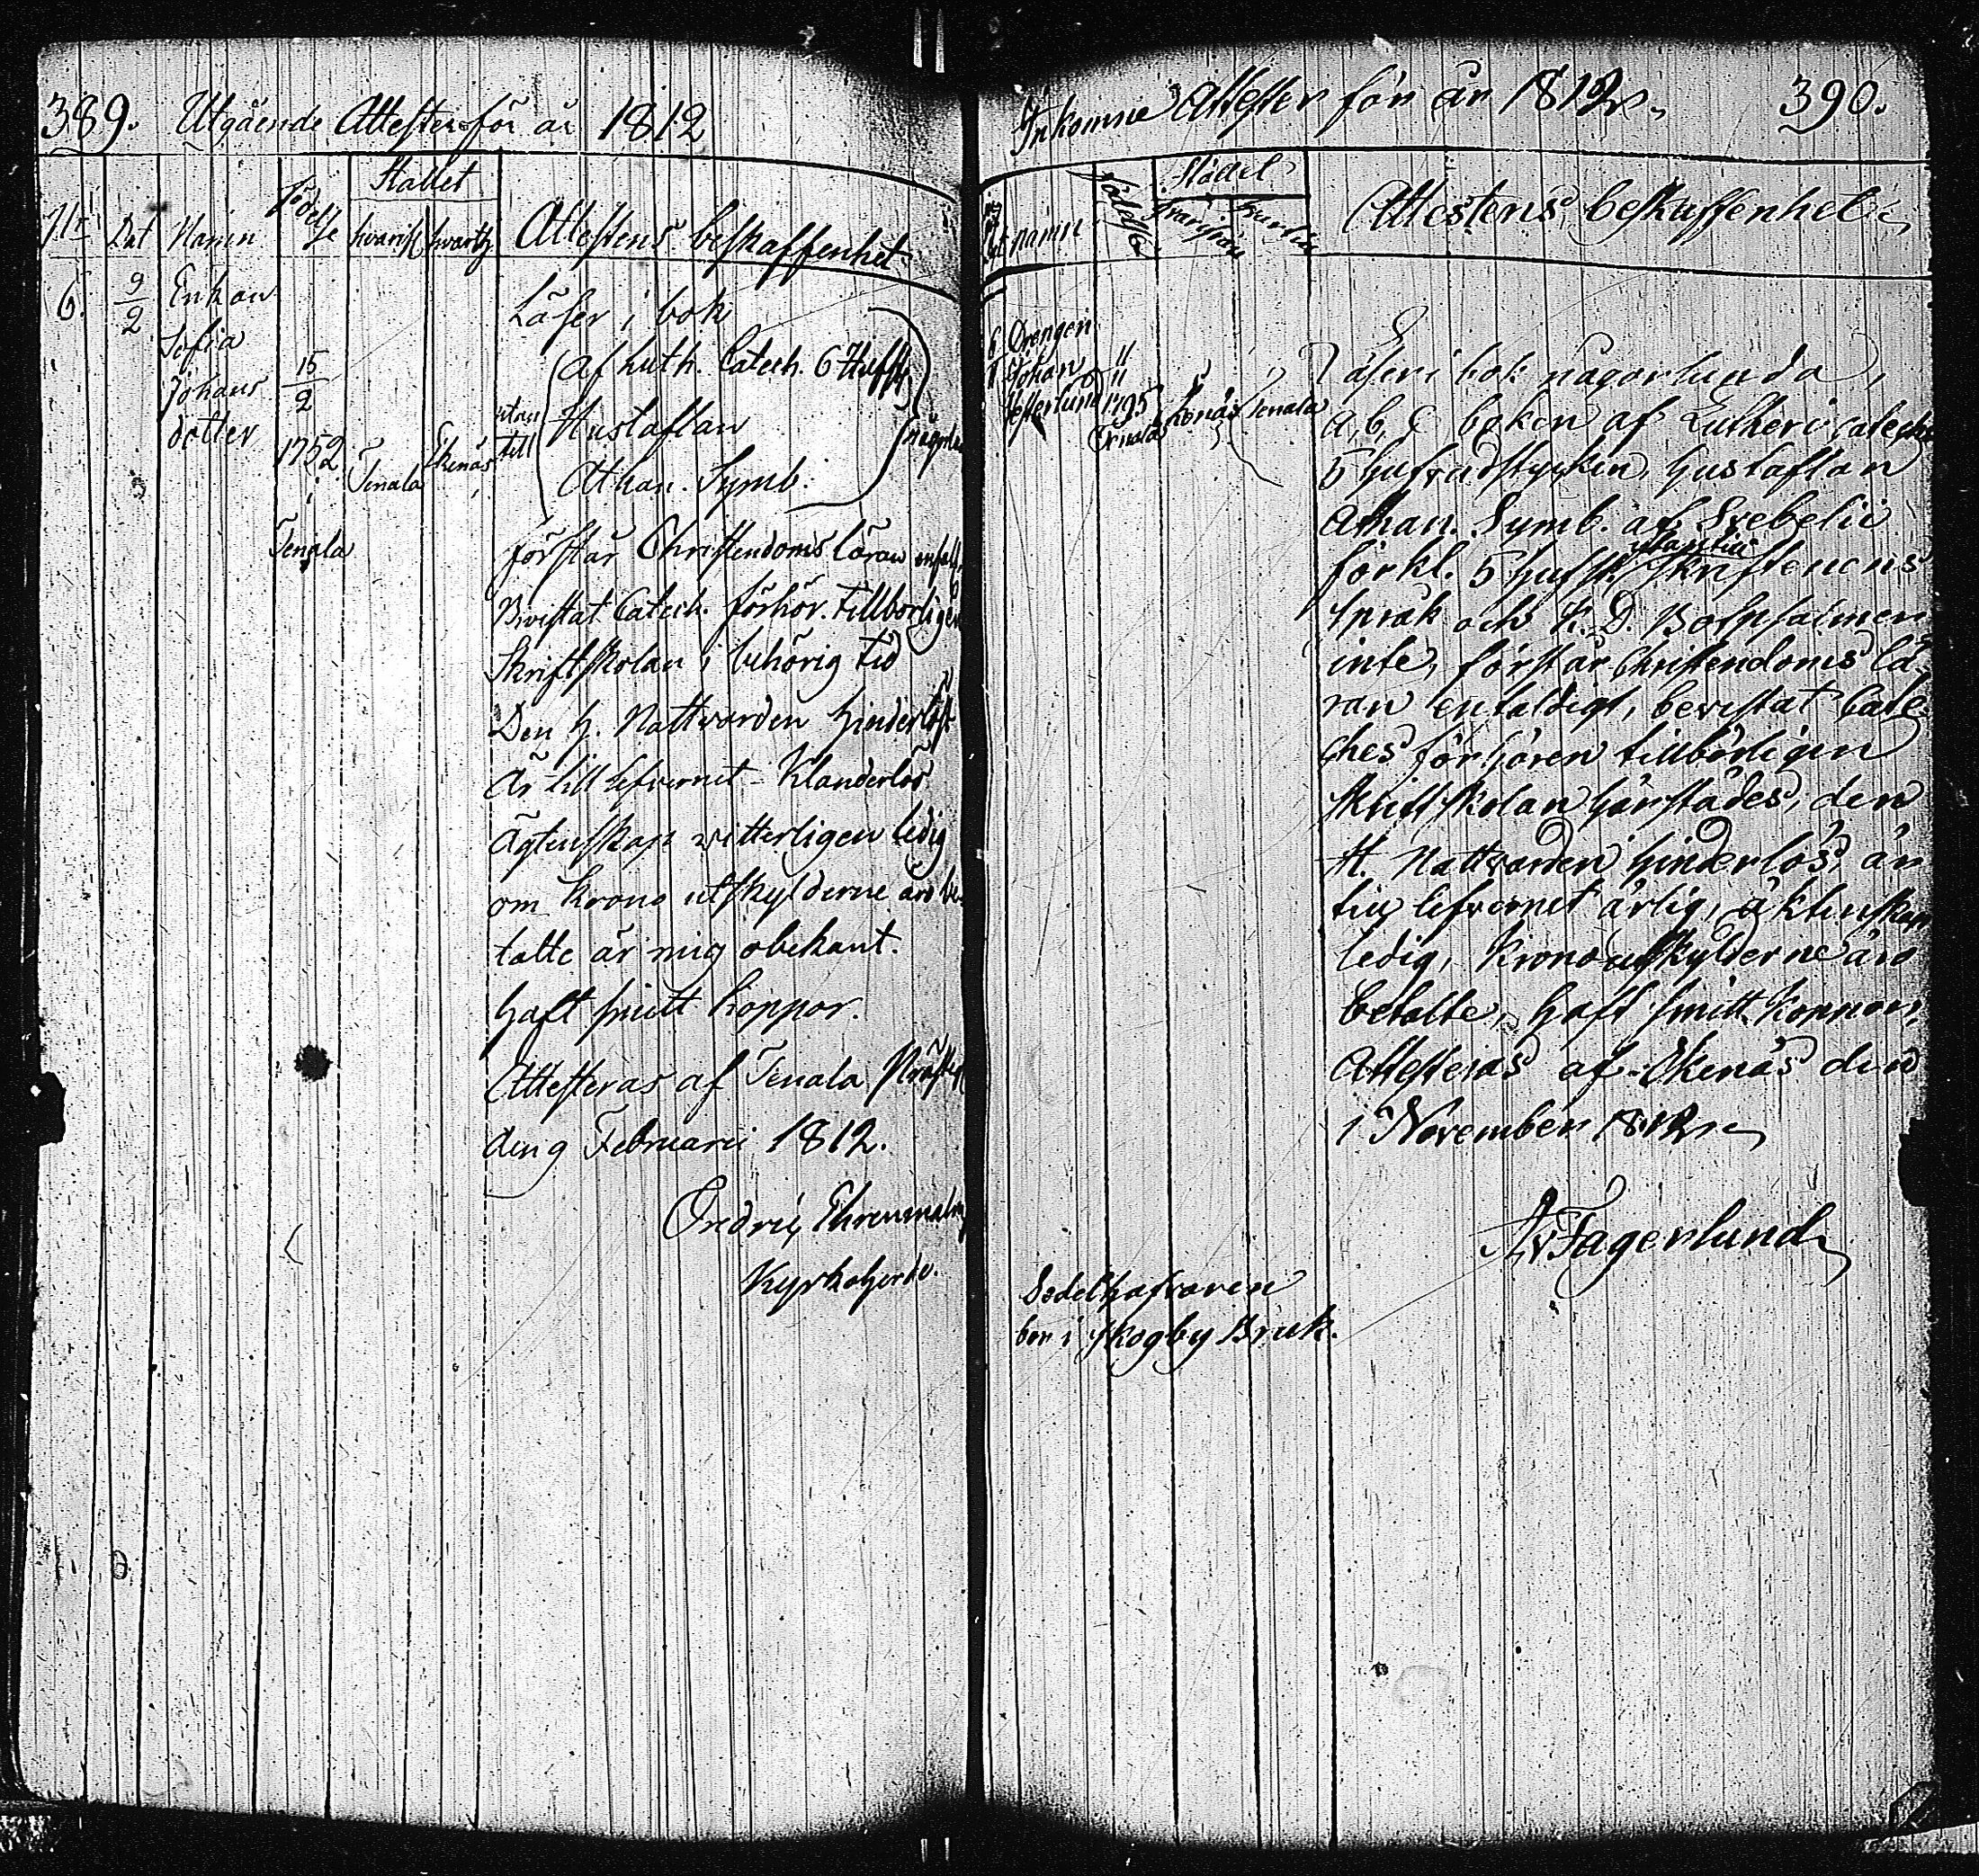 389. Utgående Attester för år 1812
Stället
No Dat Namn Födelse hvarifr hvartil Attestens beskaffenhet
6. 9/2 Enkan
Sofia
Johans
dotter
15/2
1752
i
Tenala
Tenala
Ekenäs
Läser i bok
utan till
af Luth. Catech. 6 Hufst
Hustaflan
Athan. Symb.
någorlun
förstår Christendoms läran enfalt.
Bevistat Catech. förhör. tillbörligen
Skriftskolan i behörig tid
Den H. Nattvarden hinderlöst
Är till lefvernet - Klanderlös
Ägtenskap vitterligen ledig
om Krono utskylderne äro be-
talte är mig obekant.
haft smitt koppor.
Attesteras af Tenala Präste
den 9 Februarii 1812.
Ehrenmalm
Kyrkoherde.
Inkomne Attester för år 1812. 390.
Stället
namn Födelse hvarifrån hvartil Attestens beskaffenhet
6 Drengen
Johan
11
1795
Tenala
Ekenäs
Tenala
Läser i bok någorlunda,
a, b, c boken af Lutheri cateches
5 hufvudstycken, hustaflan
Athan. Symb. af Svebelii
förkl. 5 hufst. utantill Skriftenens
språk och K. D. Botpsalmen
inte, förstår Christendoms lä-
ran enfaldigt, bevistat Cate-
ches förhören tillbörligen
Skriftskolan härstädes, den
H. Nattvarden hinderlös, är
till lefvernet ärlig, äktenskap
ledig, Kronoutskylderne äro
betalte, haft smitt Koppor,
Attesteras af Ekenäs den
1 November 1812.
Fagerlund
Sedelhafvaren
bor i Skogby Bruk.